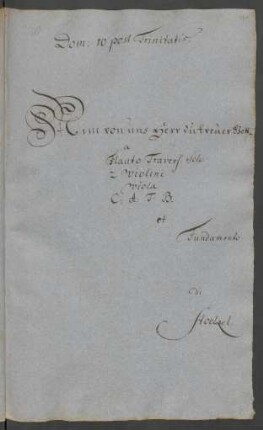 Dom: 10 post Trinitatis.
Nim von uns Herr du treuer Gott,
a
Flauto Travers. solo
2 Violini
Viola
C. A. T. B.
et
Fundamento
di
Stoelzel.